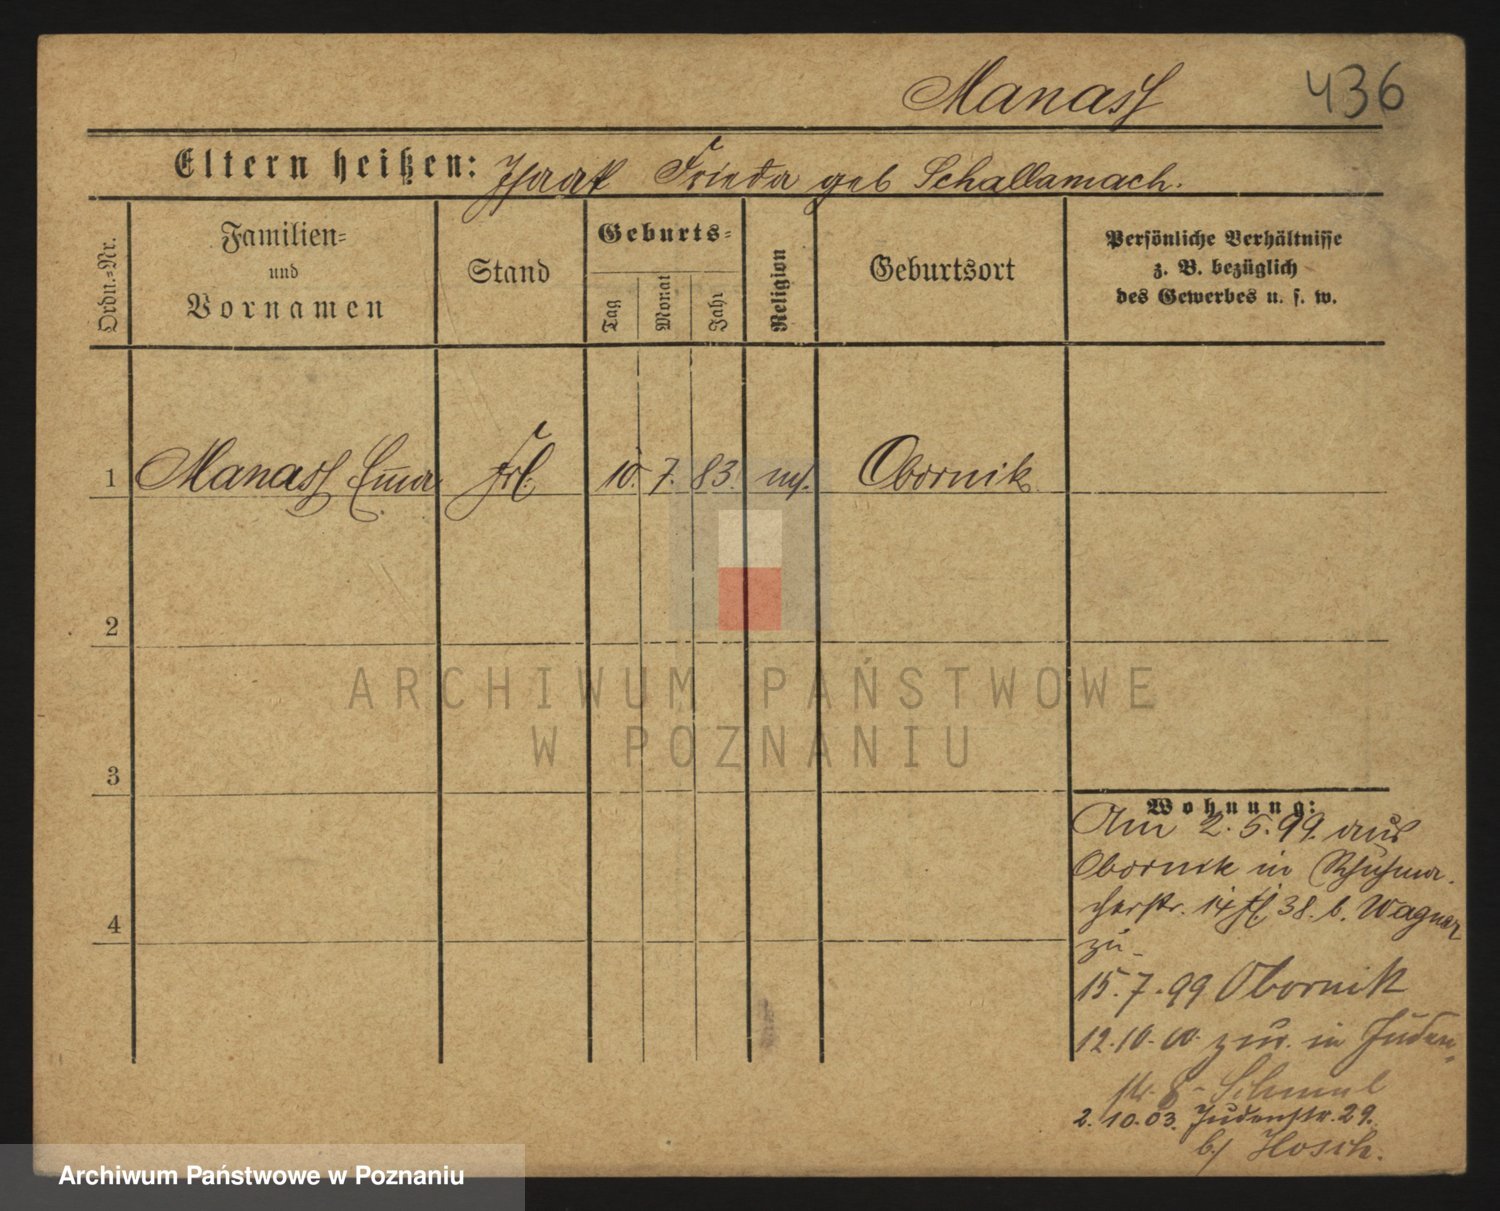 Manass 436
Eltern heißen: Isaak Frieda geb Schallamach.
Ordn.-Nr.
Familien-
und
Vornamen
Stand
Geburts-
Tag
Monat
Jahr
Religion
Geburtsort
Persönliche Verhältnisse
z. B. bezüglich
des Gewerbes u. s. w.
1 Manass Frl. 10. 7. 83. Obornik
2
3
4
ARCHIWUM PAŃSTWOWE
W POZNANIU
Wohnung:
Am 2.5.99. aus
Obornik in Schuhma-
cherstr. 14 38. b. Wagner
zu
15.7.99 Obornik
12.10.00. zur. in Juden-
str. 8 - Schmul
2.10.03. Judenstr. 29.
b/ Hosch.
Archiwum Państwowe w Poznaniu